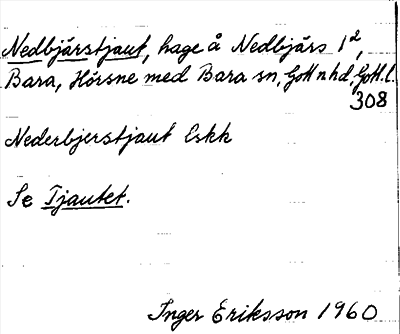 Nedbjärstjaut, hage å Nedbjärs 1²,
Bara, Hörsne med Bara sn, Gotl n hd, Gotl. l.
308
Nederbjerstjaut Eskk
Se Tjautet.
Inger Eriksson 1960